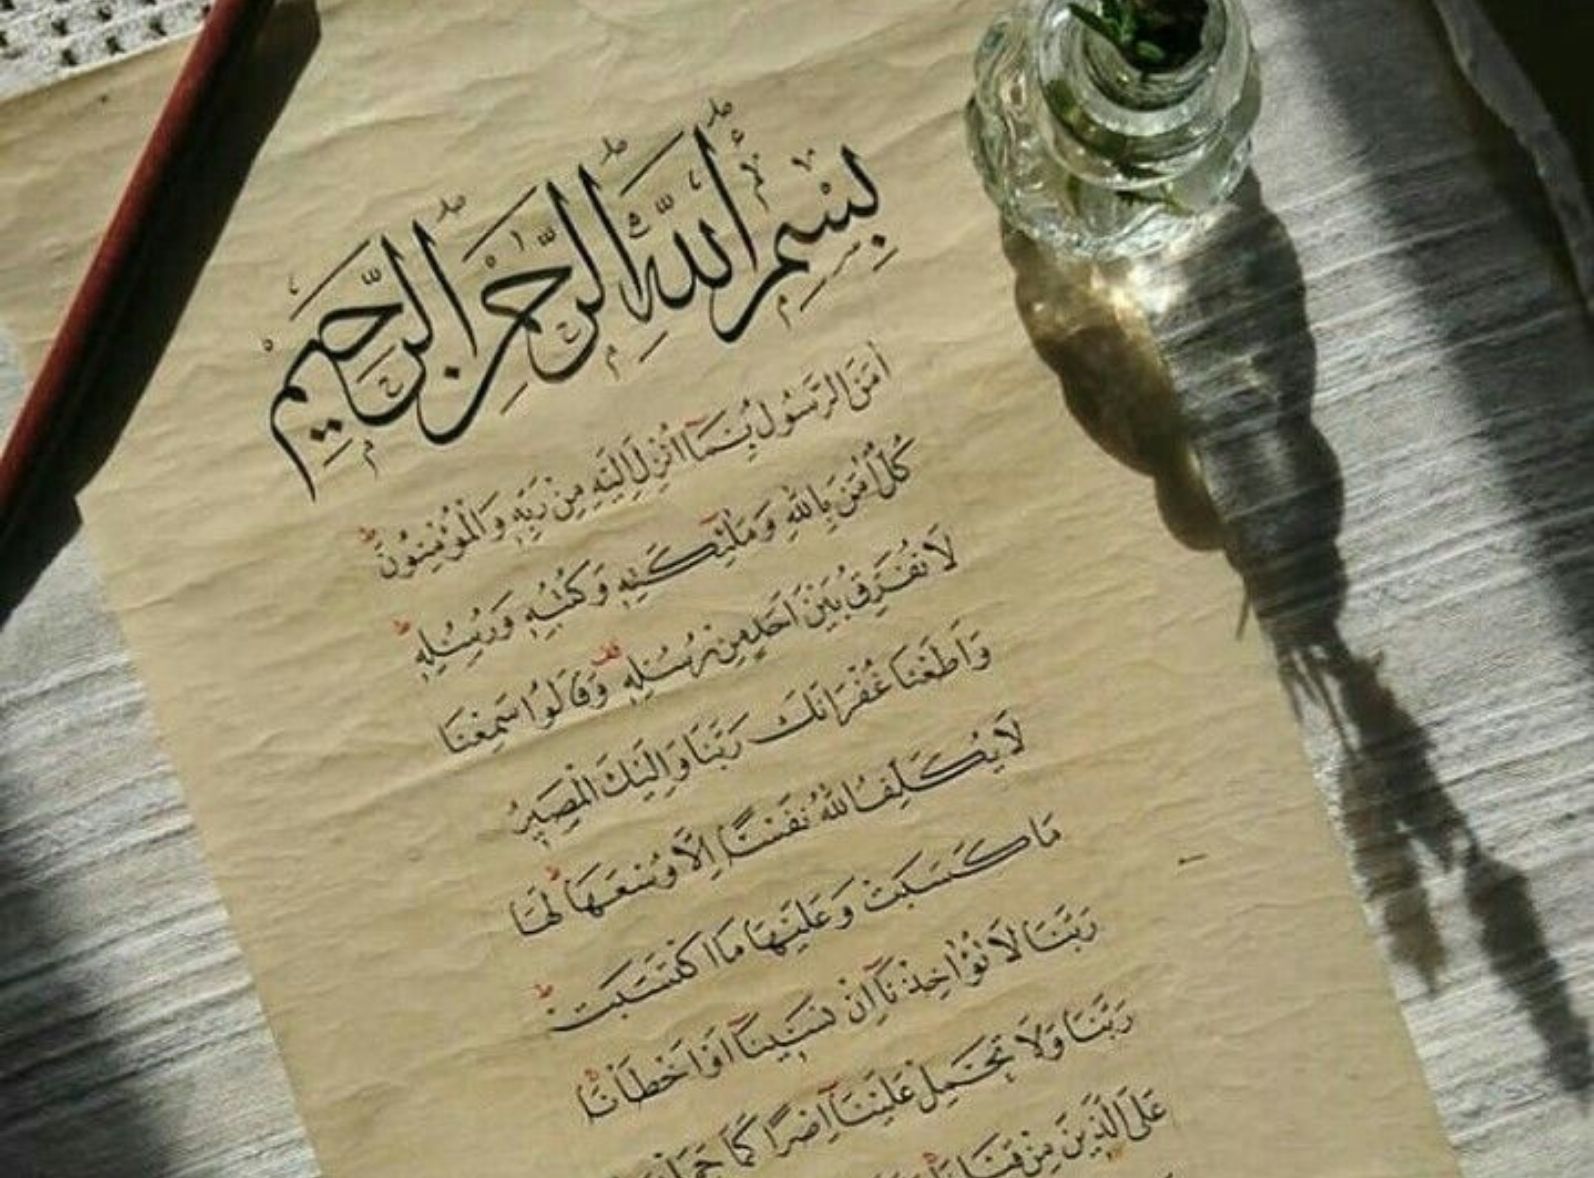 بِسْمِ اللّٰهِ الرَّحْمٰنِ الرَّحِيمِ
اٰمَنَ الرَّسُولُ بِمَٓا اُنْزِلَ اِلَيْهِ مِنْ رَبِّهٖ وَالْمُؤْمِنُونَؕ
كُلٌّ اٰمَنَ بِاللّٰهِ وَمَلٰٓئِكَتِهٖ وَكُتُبِهٖ وَرُسُلِهٖؕ
لَا نُفَرِّقُ بَيْنَ اَحَدٍ مِنْ رُسُلِهٖ وَقَالُوا سَمِعْنَا
وَاَطَعْنَا غُفْرَانَكَ رَبَّنَا وَاِلَيْكَ الْمَصٖيرُ
لَا يُكَلِّفُ اللّٰهُ نَفْسًا اِلَّا وُسْعَهَاؕ لَهَا
مَا كَسَبَتْ وَعَلَيْهَا مَا اكْتَسَبَتْؕ
رَبَّنَا لَا تُؤَاخِذْنَٓا اِنْ نَسٖينَٓا اَوْ اَخْطَاْنَاۚ
رَبَّنَا وَلَا تَحْمِلْ عَلَيْنَٓا اِصْرًا كَمَا
عَلَى الَّذٖينَ مِنْ